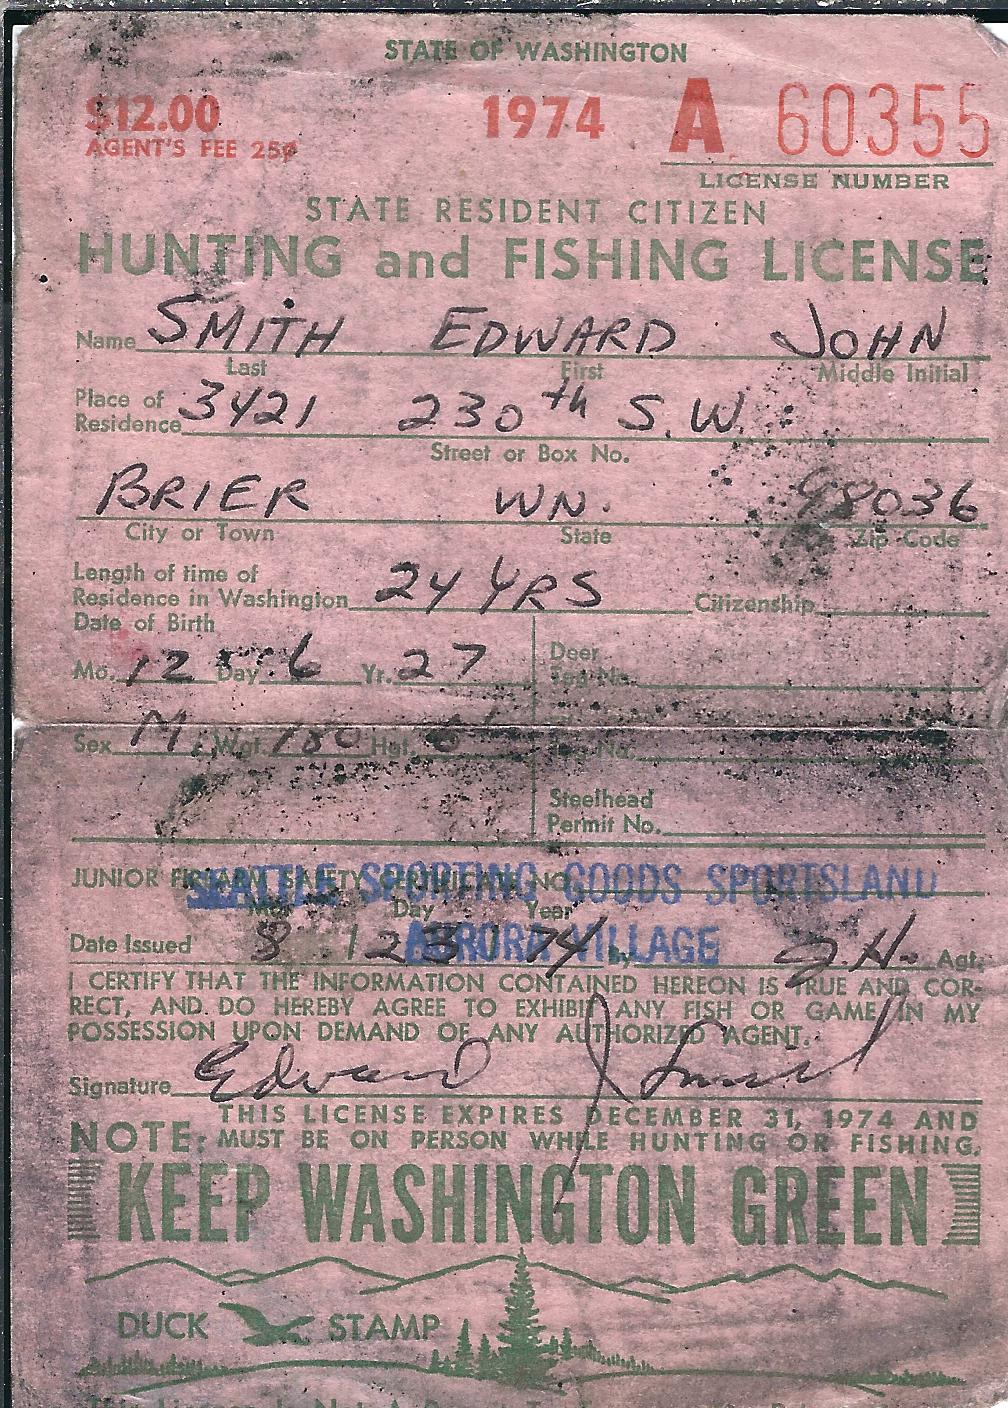 STATE OF WASHINGTON
$12.00 1974 A 60355
AGENT'S FEE 25¢
LICENSE NUMBER
STATE RESIDENT CITIZEN
HUNTING and FISHING LICENSE
Name SMITH EDWARD JOHN
Last First Middle Initial
Place of
Residence 3421 230th S.W.
Street or Box No.
BRIER WN. 98036
City or Town State Zip Code
Length of time of
Residence in Washington 24 YRS Citizenship
Date of Birth
Mo. 12 Day 6 Yr. 27
Deer
Tag No.
Sex M Wgt. 180 Hgt. 6' No.
Steelhead
Permit No.
JUNIOR SAFETY CERTIFICATE NO.
SEATTLE SPORTING GOODS SPORTSLAND
Mo. Day Year
AURORA VILLAGE
Date Issued 8 23 74 by J.H. Agt.
I CERTIFY THAT THE INFORMATION CONTAINED HEREON IS TRUE AND COR-
RECT, AND DO HEREBY AGREE TO EXHIBIT ANY FISH OR GAME IN MY
POSSESSION UPON DEMAND OF ANY AUTHORIZED AGENT.
Signature Edward J Smith
NOTE: THIS LICENSE EXPIRES DECEMBER 31, 1974 AND
MUST BE ON PERSON WHILE HUNTING OR FISHING.
KEEP WASHINGTON GREEN
DUCK STAMP